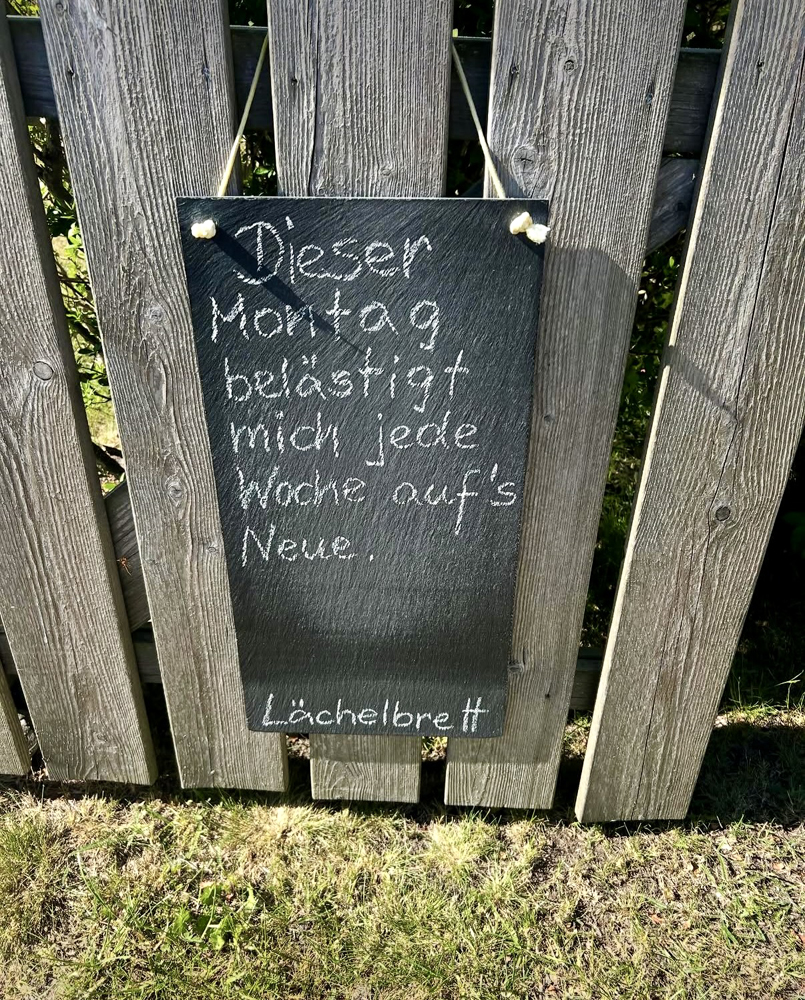 Dieser
Montag
belästigt
mich jede
Woche auf's
Neue.
Lächelbrett